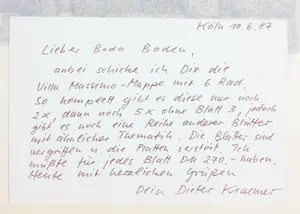 Köln 10.6.87
Lieber Bodo Boden,
anbei schicke ich Dir die
Villa Massimo-Mappe mit 6 Rad.
So komplett gibt es diese nur noch
2x, dann noch 5x ohne Blatt 3, jedoch
gibt es noch eine Reihe anderer Blätter
mit ähnlicher Thematik. Die Blätter sind
vergriffen u. die Platten zerstört. Ich
müßte für jedes Blatt DM 270.- haben.
Heute mit herzlichen Grüßen
Dein Dieter Kraemer